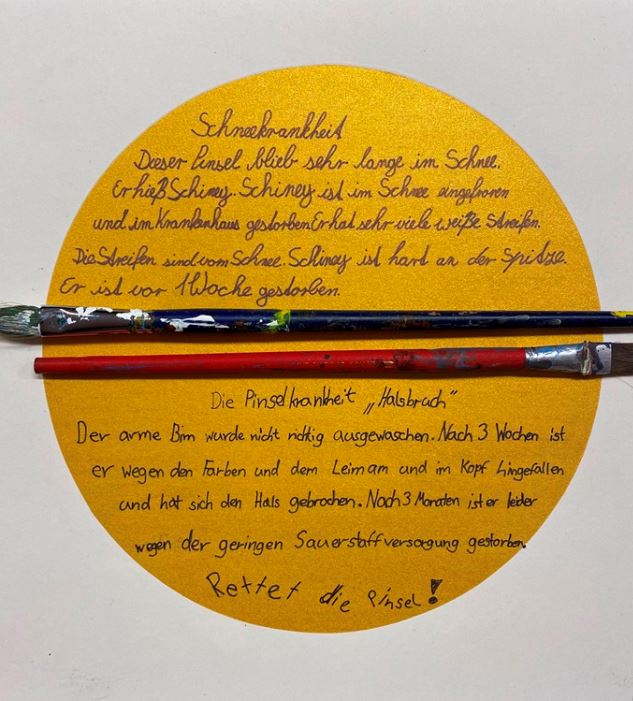 Schneekrankheit
Dieser Pinsel blieb sehr lange im Schnee.
Er hieß Schiney. Schiney ist im Schnee eingefroren
und im Krankenhaus gestorben Er hat sehr viele weiße Streifen.
Die Streifen sind vom Schnee. Schiney ist hart an der Spitze.
Er ist vor 1 Woche gestorben.
Die Pinselkrankheit „Halsbruch“
Der arme Bim wurde nicht richtig ausgewaschen. Nach 3 Wochen ist
er wegen den Farben und dem Leim am und im Kopf hingefallen
und hat sich den Hals gebrochen. Nach 3 Monaten ist er leider
wegen der geringen Sauerstoffversorgung gestorben.
Rettet die Pinsel!